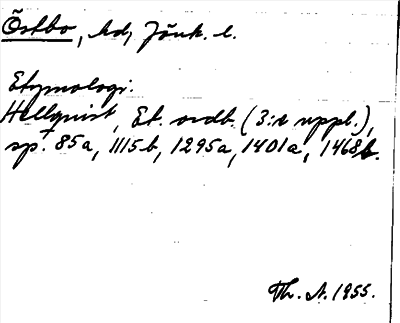 Östbo, hd, Jönk. l.
Etymologi.
Hellquist, Et. ordb. (3:e uppl.),
sp. 85a, 1115b, 1295a, 1401a, 1468b.
Th. A. 1955.